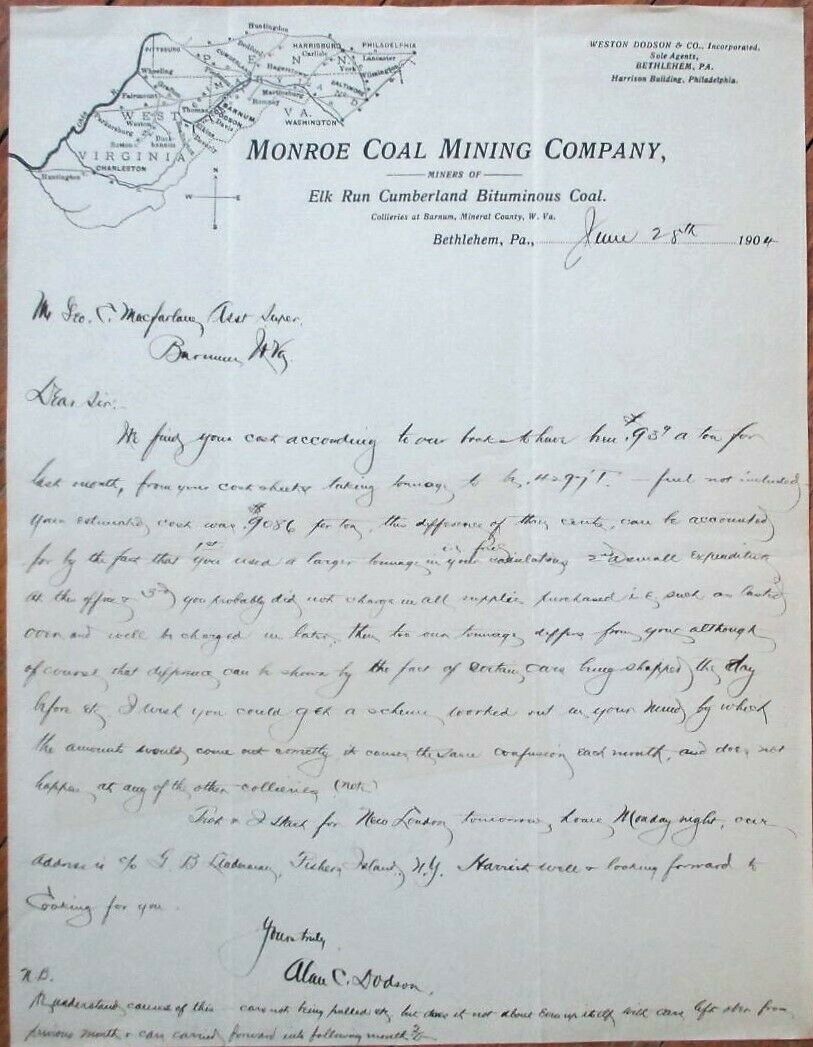 WESTON DODSON & CO., Incorporated,
Sole Agents,
BETHLEHEM, PA.
Harrison Building, Philadelphia.
Huntingdon
PITTSBURG
HARRISBURG
PHILADELPHIA
Carlisle
Lancaster
Wheeling
York
Wilmington
Hagerstown
BALTIMORE
PENN
MARYLAND
Fairmont
Martinsburg
Romney
Thomas
BARNUM
DODSON
Davis
Elkins
OHIO R
Parkersburg
Weston
WEST
VA.
WASHINGTON
VIRGINIA
CHARLESTON
Huntington
N
W E
S
MONROE COAL MINING COMPANY,
MINERS OF
Elk Run Cumberland Bituminous Coal.
Collieries at Barnum, Mineral County, W. Va.
Bethlehem, Pa., June 28th 1904
Mr Geo. C. Macfarlane, Asst Super.
Barnum W Va
Dear Sir:-
We find your cost according to our books to have been .939 a ton for
last month, from your cost sheets taking tonnage to be - fuel not included
your estimated cost was .9086 per ton, the difference of three cents, can be accounted
for by the fact that 1st you used a larger tonnage in your calculations 2nd a small expenditure
at the office & 3rd you probably did not charge in all supplies purchased i.e. such as
corn and will be charged in later, then too our tonnage differs from yours although
of course that difference can be shown by the fact of certain cars being shopped the day
before etc I wish you could get a scheme worked out in your mind by which
the amounts would come out correctly it causes the same confusion each month, and does not
happen at any of the other collieries (note)
& I start for New London tomorrow, home Monday night, our
address is c/o G B Fishers Island, N.Y. well & looking forward to
Cooking for you.
Yours truly
Alan C. Dodson.
N.B.
understand causes of this - cars not being pulled etc, but does it not about even up itself with cars left over from
previous month & cars carried forward into following month?